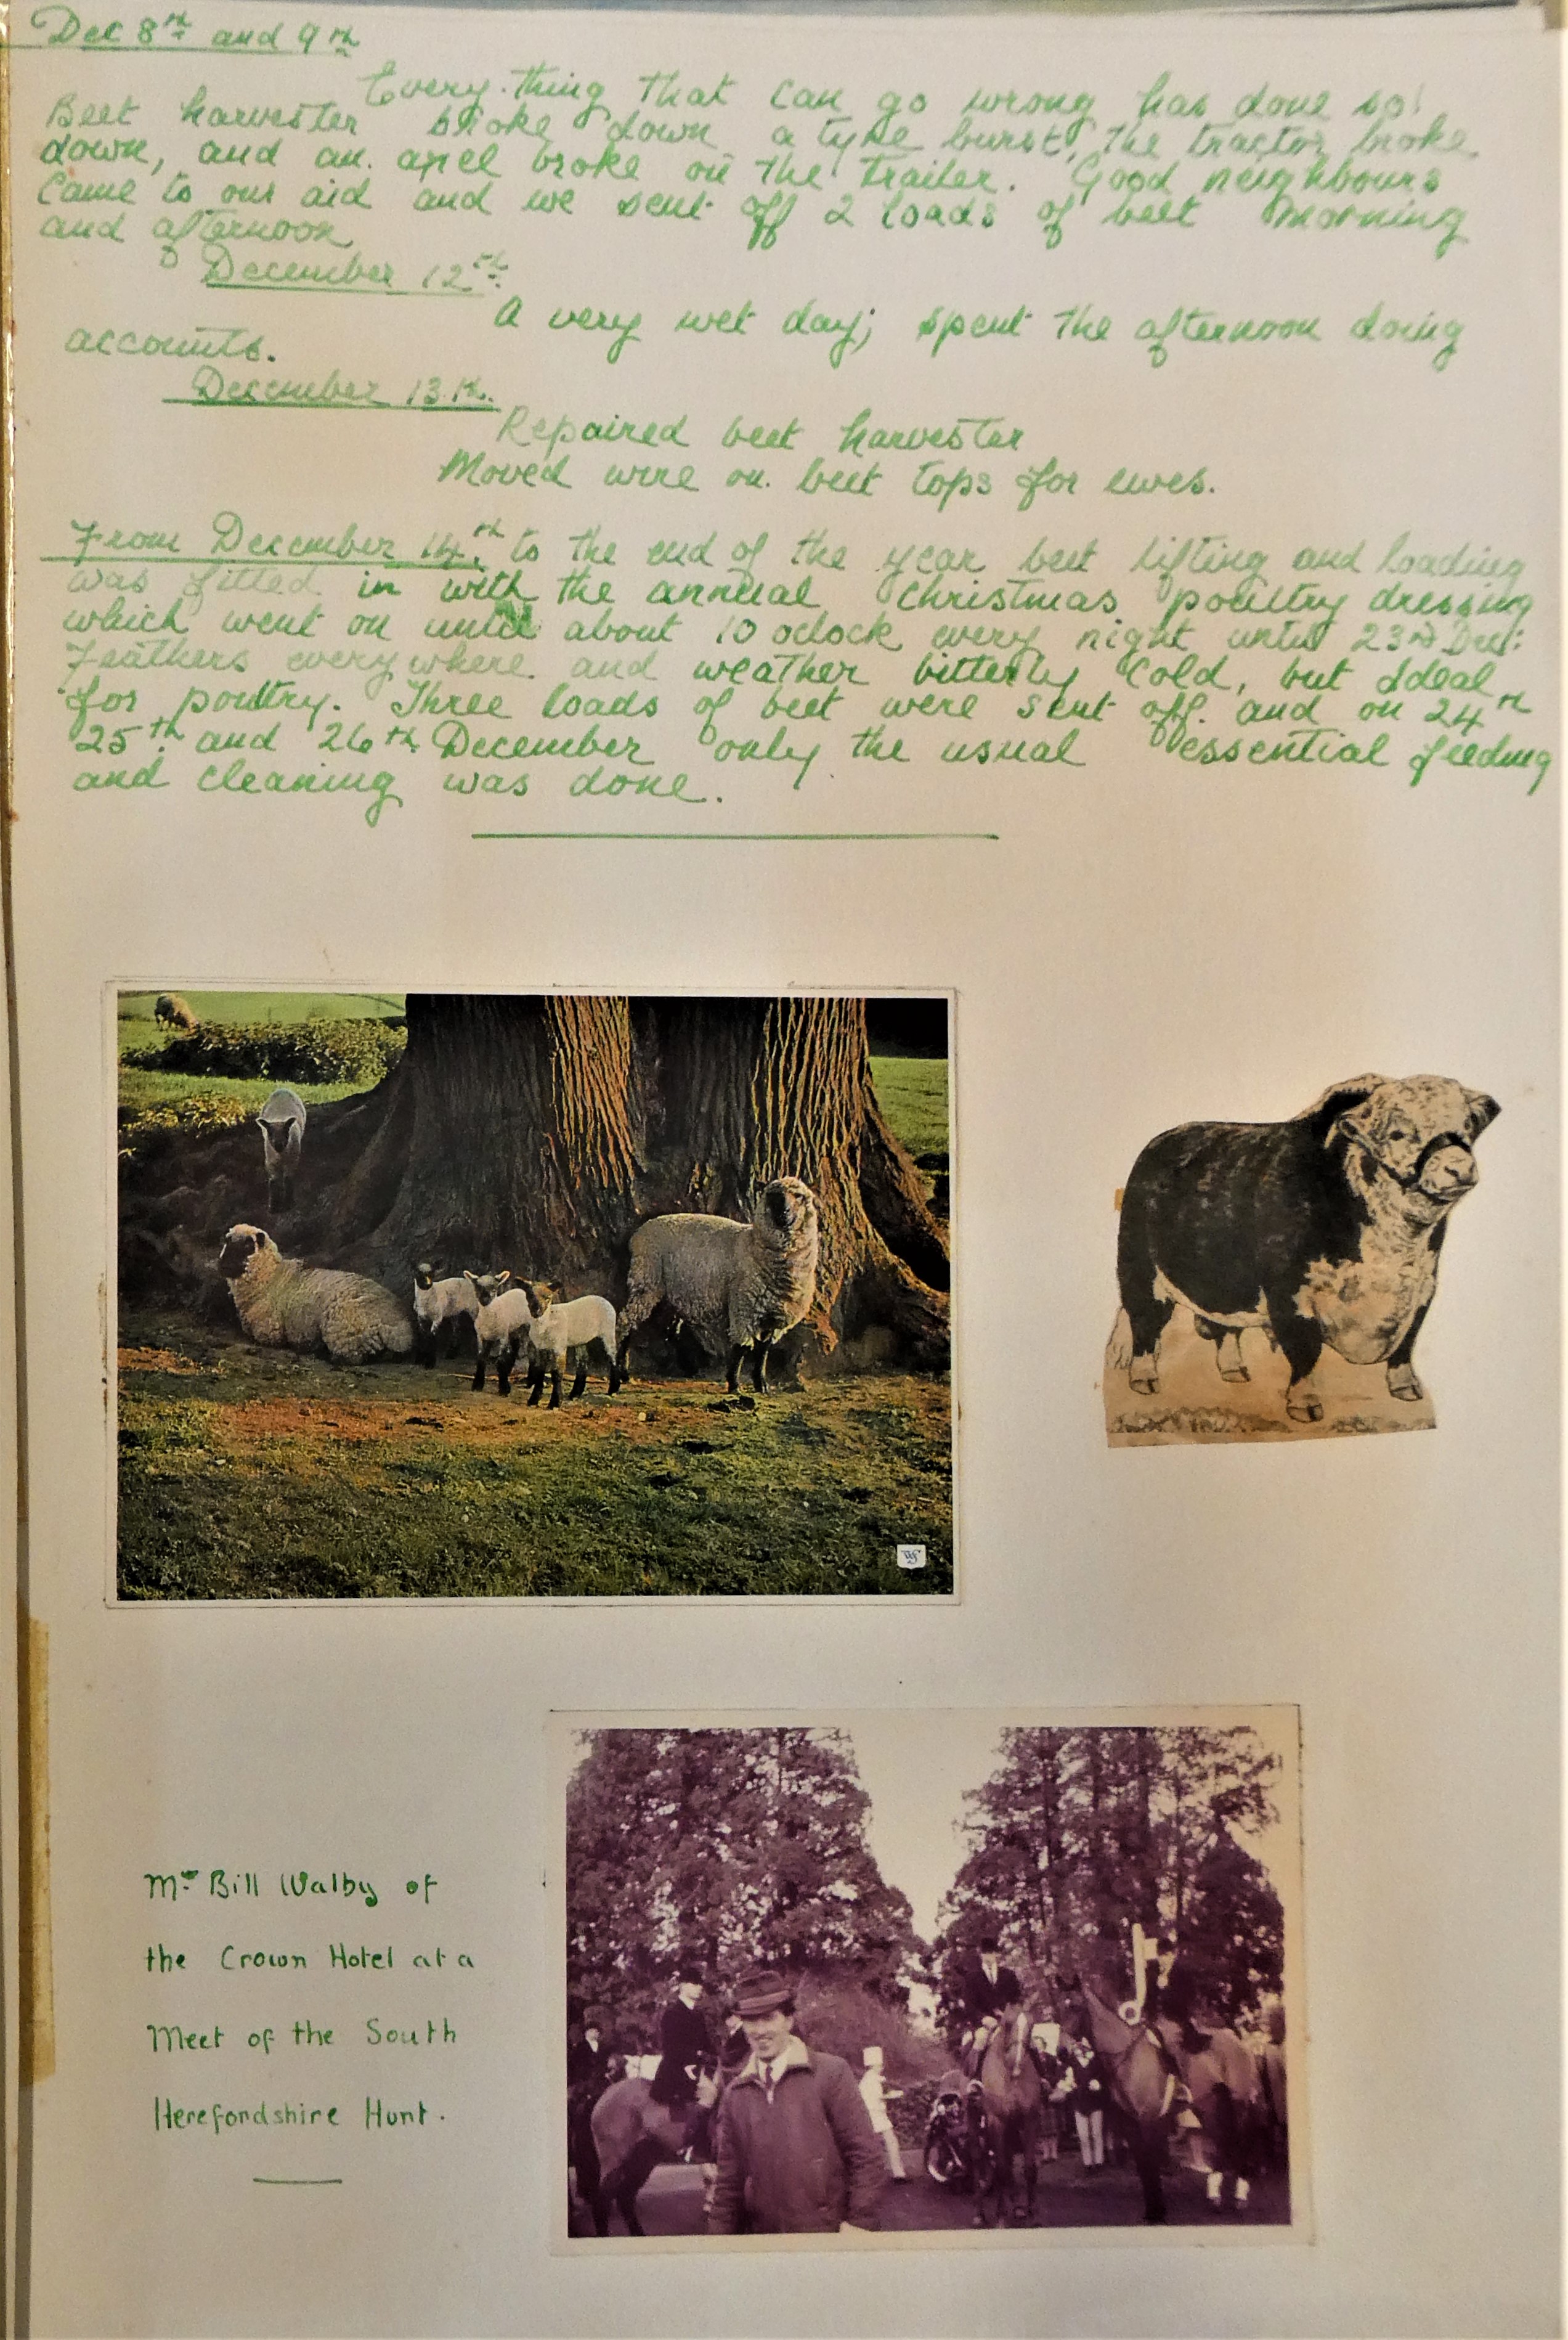 Dec 8th and 9th
Every thing that can go wrong has done so!
Beet harvester broke down a tyre burst, the tractor broke
down, and an axel broke on the trailer. Good neighbours
came to our aid and we sent off 2 loads of beet morning
and afternoon
December 12th.
A very wet day; spent the afternoon doing
accounts.
December 13th.
Repaired beet harvester
Moved wire on beet tops for ewes.
From December 14th. to the end of the year beet lifting and loading
was fitted in with the annual Christmas poultry dressing
which went on until about 10 oclock every night until 23rd Dec:
Feathers everywhere and weather bitterly cold, but ideal
for poultry. Three loads of beet were sent off. and on 24th
25th. and 26th December only the usual essential feeding
and cleaning was done.
Mr Bill Walby of
the Crown Hotel at a
Meet of the South
Herefordshire Hunt.